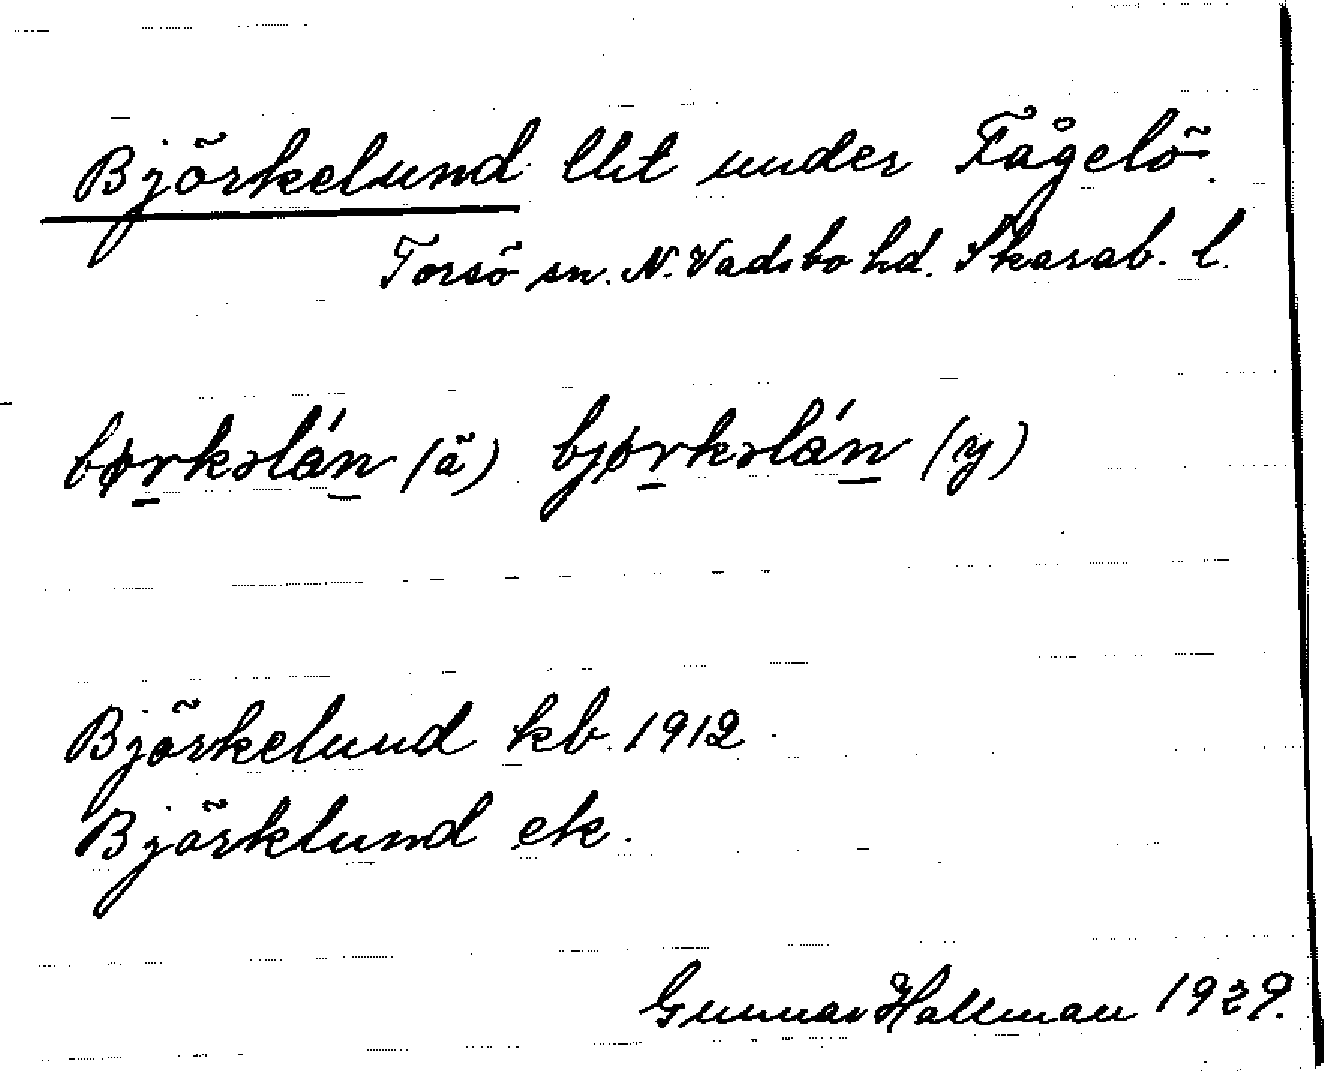 Björkelund lht under Fågelö.
Torsö sn. N. Vadsbo hd. Skarab. l.
børkəlán (ä) bjørkəlán (y)
Björkelund kb. 1912
Björklund ek.
Gunnar Hallman 1929.